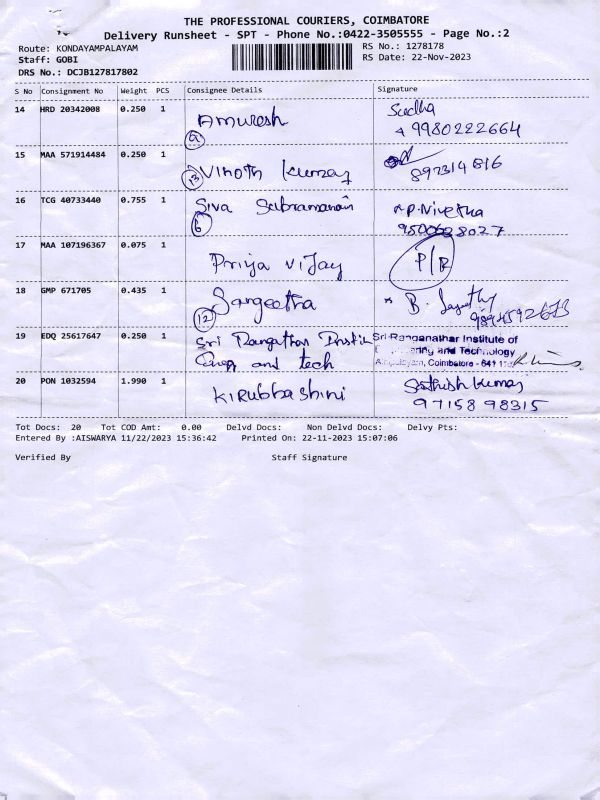 THE PROFESSIONAL COURIERS, COIMBATORE
Delivery Runsheet - SPT - Phone No.:0422-3505555 - Page No.:2
Route: KONDAYAMPALAYAM
Staff: GOBI
DRS No.: DCJB127817802
RS No.: 1278178
RS Date: 22-Nov-2023
S No Consignment No Weight PCS Consignee Details Signature
14 HRD 20342008 0.250 1 Amuresh Sudha
9980222664
15 MAA 571914484 0.250 1 13 Vinoth Kumar
897314816
16 TCG 40733440 0.755 1 Siva Subramanian P. Nivetha
6 9500628027
17 MAA 107196367 0.075 1 Priya Vijay P/R
18 GMP 671705 0.435 1 Sangeetha B.
12 9894592673
19 EDQ 25617647 0.250 1 Sri Ranganathar Sri Ranganathar Institute of
Engg and tech and Technology
Coimbatore - 641
20 PON 1032594 1.990 1 Kirubbashini Sathish Kumar
97158 98315
Tot Docs: 20 Tot COD Amt: 0.00 Delvd Docs: Non Delvd Docs: Delvy Pts:
Entered By :AISWARYA 11/22/2023 15:36:42 Printed On: 22-11-2023 15:07:06
Verified By Staff Signature